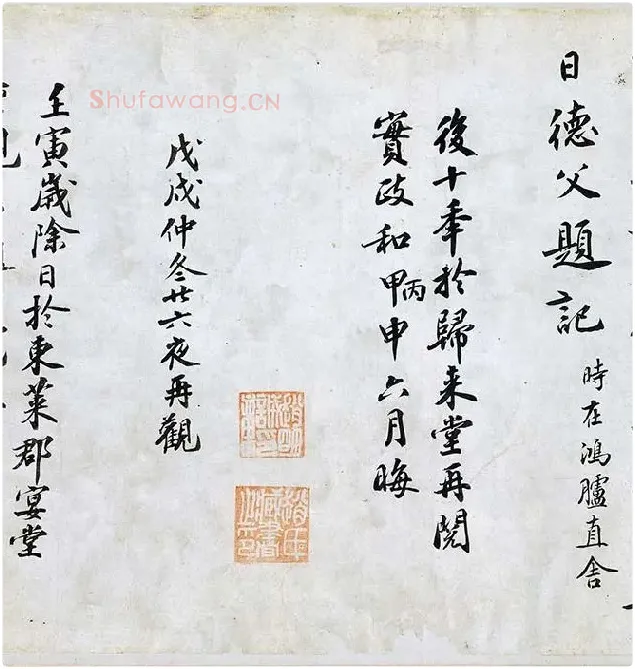 Shufawang.CN
日德父題記
時在鴻臚直舍
後十秊於歸来堂再閱
實政和甲丙申六月晦
戊戌仲冬廿六夜再觀
壬寅歲除日於東萊郡宴堂